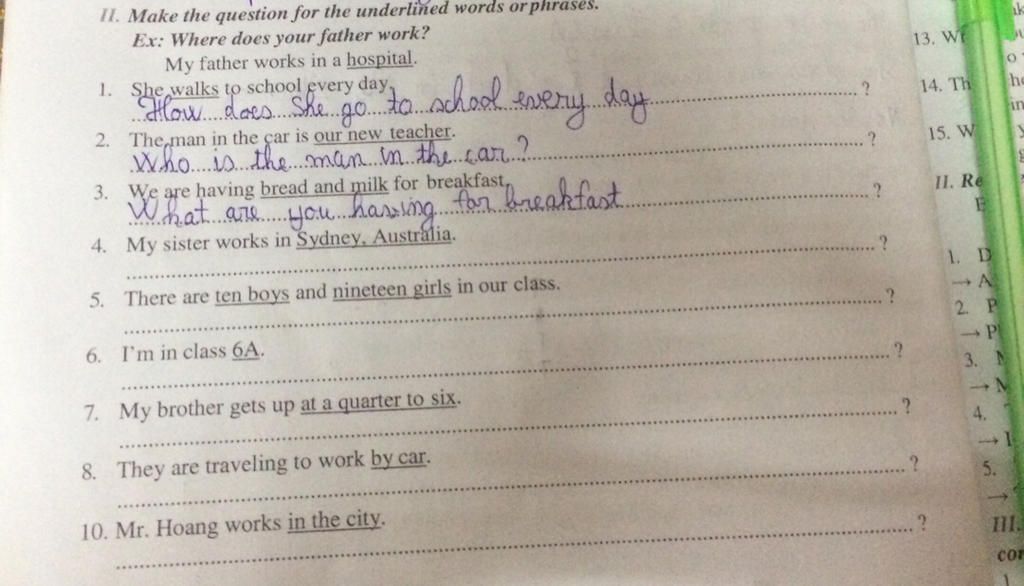 II. Make the question for the underlined words or phrases.
Ex: Where does your father work?
My father works in a hospital.
1. She walks to school every day.
How does she go to school every day ?
2. The man in the car is our new teacher.
Who is the man in the car? ?
3. We are having bread and milk for breakfast.
What are you having for breakfast ?
4. My sister works in Sydney, Australia.
?
5. There are ten boys and nineteen girls in our class.
?
6. I'm in class 6A.
?
7. My brother gets up at a quarter to six.
?
8. They are traveling to work by car.
?
10. Mr. Hoang works in the city.
?
13.
14.
15.
II.
1.
→
2.
→
3.
→
4.
→
5.
→
III.
1